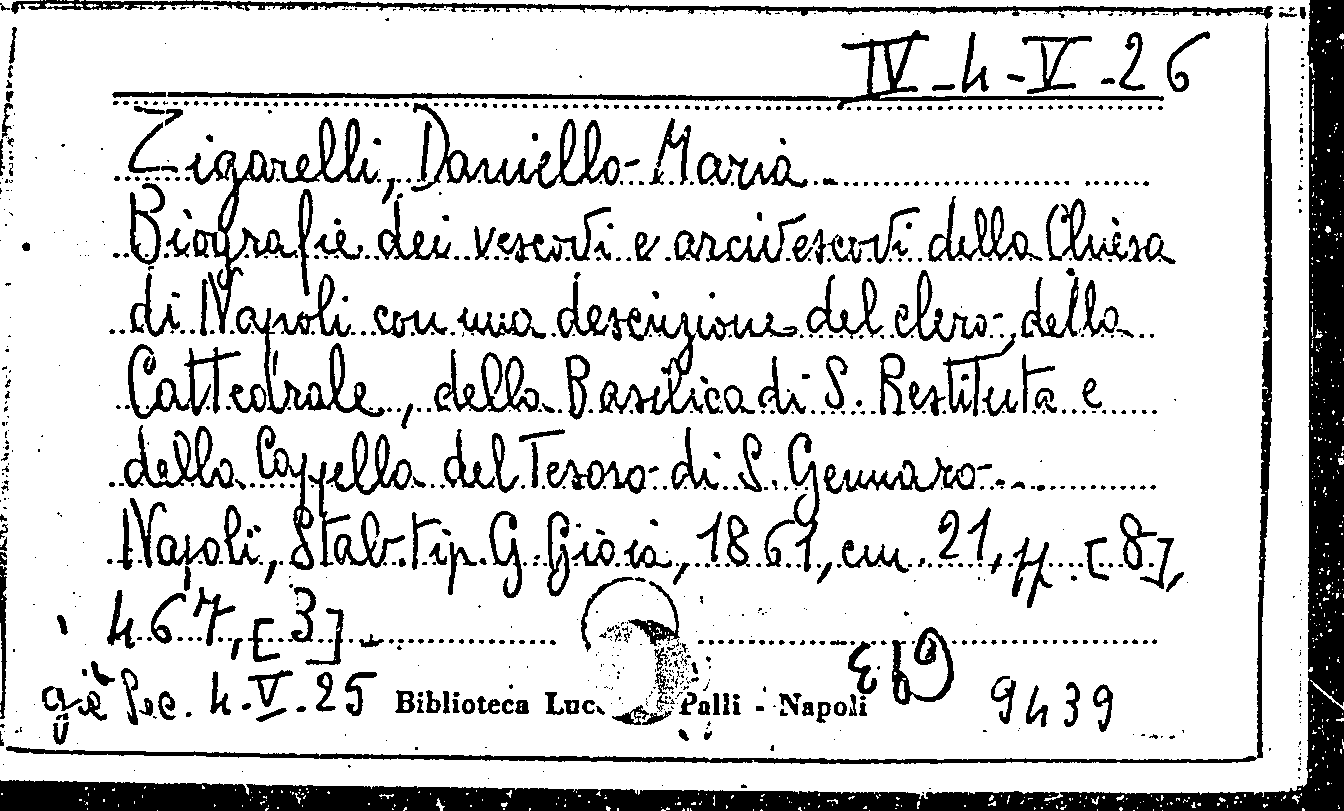 IV-4-V-26
Zigarelli, Daniello-Maria.
Biografie dei vescovi e arcivescovi della Chiesa
di Napoli con una descrizione del clero, della
Cattedrale, della Basilica di S. Restituta e
della Cappella del Tesoro di S. Gennaro...
Napoli, Stab. tip. G. Gioia, 1861, cm. 21, pp. [8],
467, [3].
già Sec. 4.V.25 Biblioteca Palli - Napoli 9439